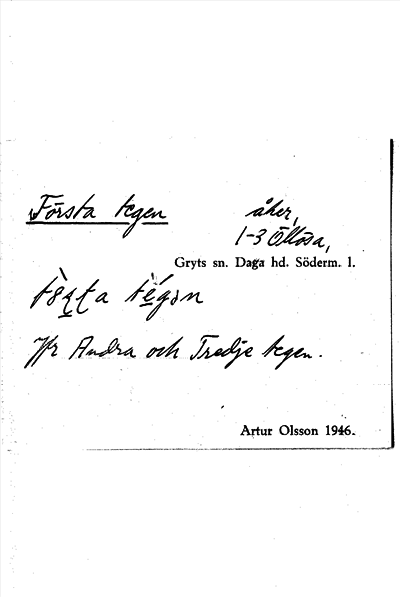 Första tegen åker,
1-3 Öllösa,
Gryts sn. Daga hd. Söderm. l.
Jfr Andra och Tredje tegen.
Artur Olsson 1946.